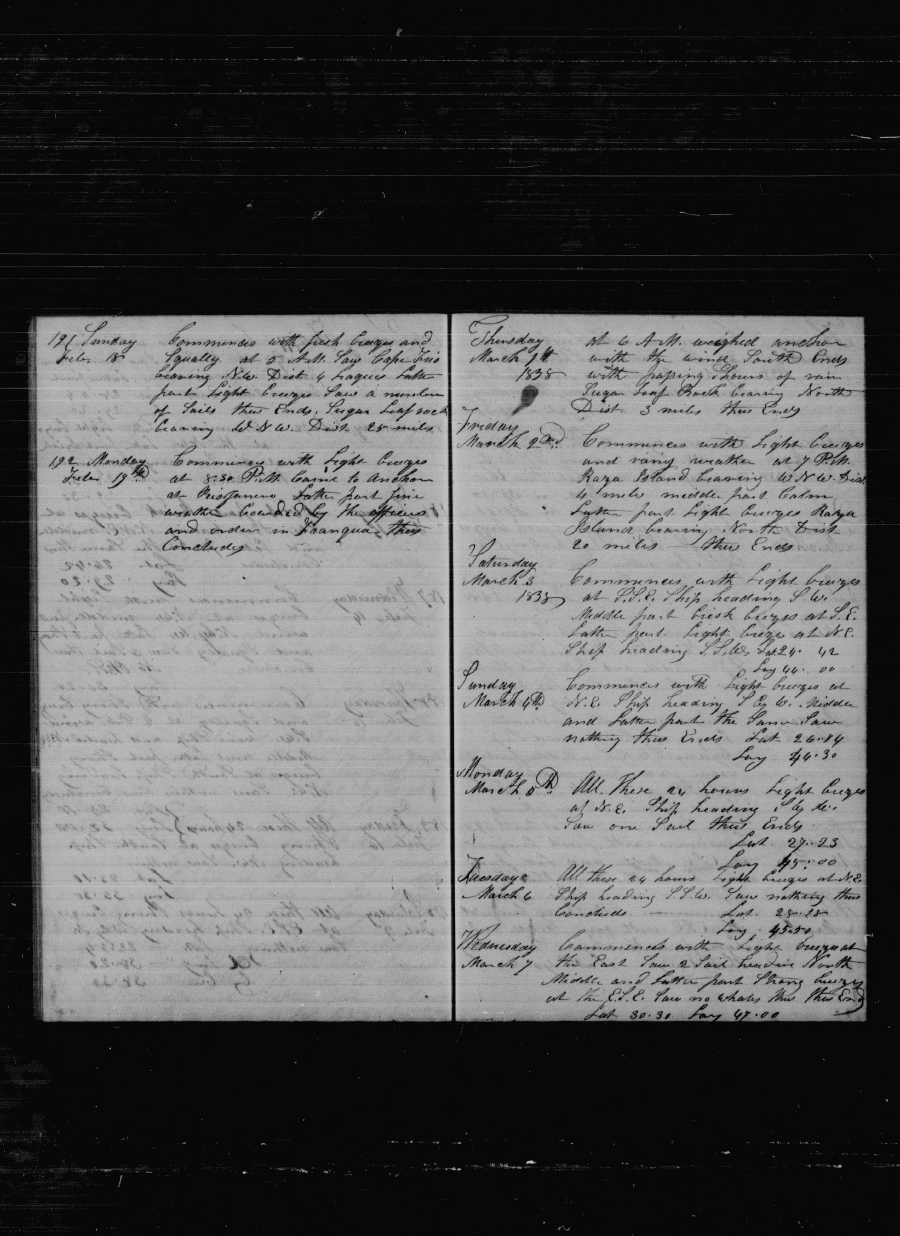 191 Sunday Commences with fresh breezes and
Feb 18 Squally at 5 A.M. Saw Cape Frio
bearing N.W. Dist 4 Leagues Latter
part Light breezes Saw a number
of Sails thus Ends. Sugar Loaf rock
bearing W N W. Dist 25 miles
192 Monday Commences with Light breezes
Feb 19th at 8.30 P.M. Came to Anchor
at Latter part fine
weather boarded by the officers
and orders in thus
Concludes
Thursday at 6 A M. weighed anchor
March 1th with the wind South Ends
1838 with passing Shours of rain
Sugar Loaf Rock bearing North
Dist. 3 miles thus Ends
Friday
March 2nd Commences with Light breezes
and rainy weather at 7 P.M.
Raza Island bearing W.N.W. Dist
4 miles middle part Calm
Latter part Light breezes Razza
Island bearing North Dist
20 miles — thus Ends
Saturday
March 3 Commences with Light breezes
1838 at S.S.E. Ship heading S W.
Middle part brisk breezes at S.E.
Latter part Light breeze at N.E.
Ship heading S.S.W. Lat 24. 42
Log 44. 00
Sunday Commences with Light breezes at
March 4th N.E. Ship heading S By W. Middle
and Latter part the Same Saw
nothing thus Ends Lat 26.04
Log 44.30
Monday
March 5th All these 24 hours Light breezes
at N.E. Ship heading S by W.
Saw one Sail thus Ends
Lat. 27..23
Log 45..00
Tuesday All these 24 hours Light breezes at N.E
March 6 Ship heading S.S.W. Saw nothing thus
Concluds Lat. 28..28
Log. 45.50
Wednesday Commences with Light breezes at
March 7 the East Saw 2 Sail heading North
Middle and Latter part Strong breezes
at the E.S.E. Saw no whales thus thus End
Lat 30.30 Log 47.00